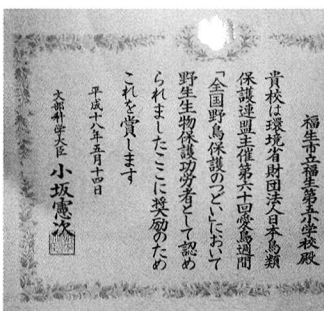 福生市立福生第五小学校殿
貴校は環境省財団法人日本鳥類
保護連盟主催第六十回愛鳥週間
「全国野鳥保護のつどい」において
野生生物保護功労者として認め
られましたここに奨励のため
これを賞します
平成十八年五月十四日
文部科学大臣 小坂憲次